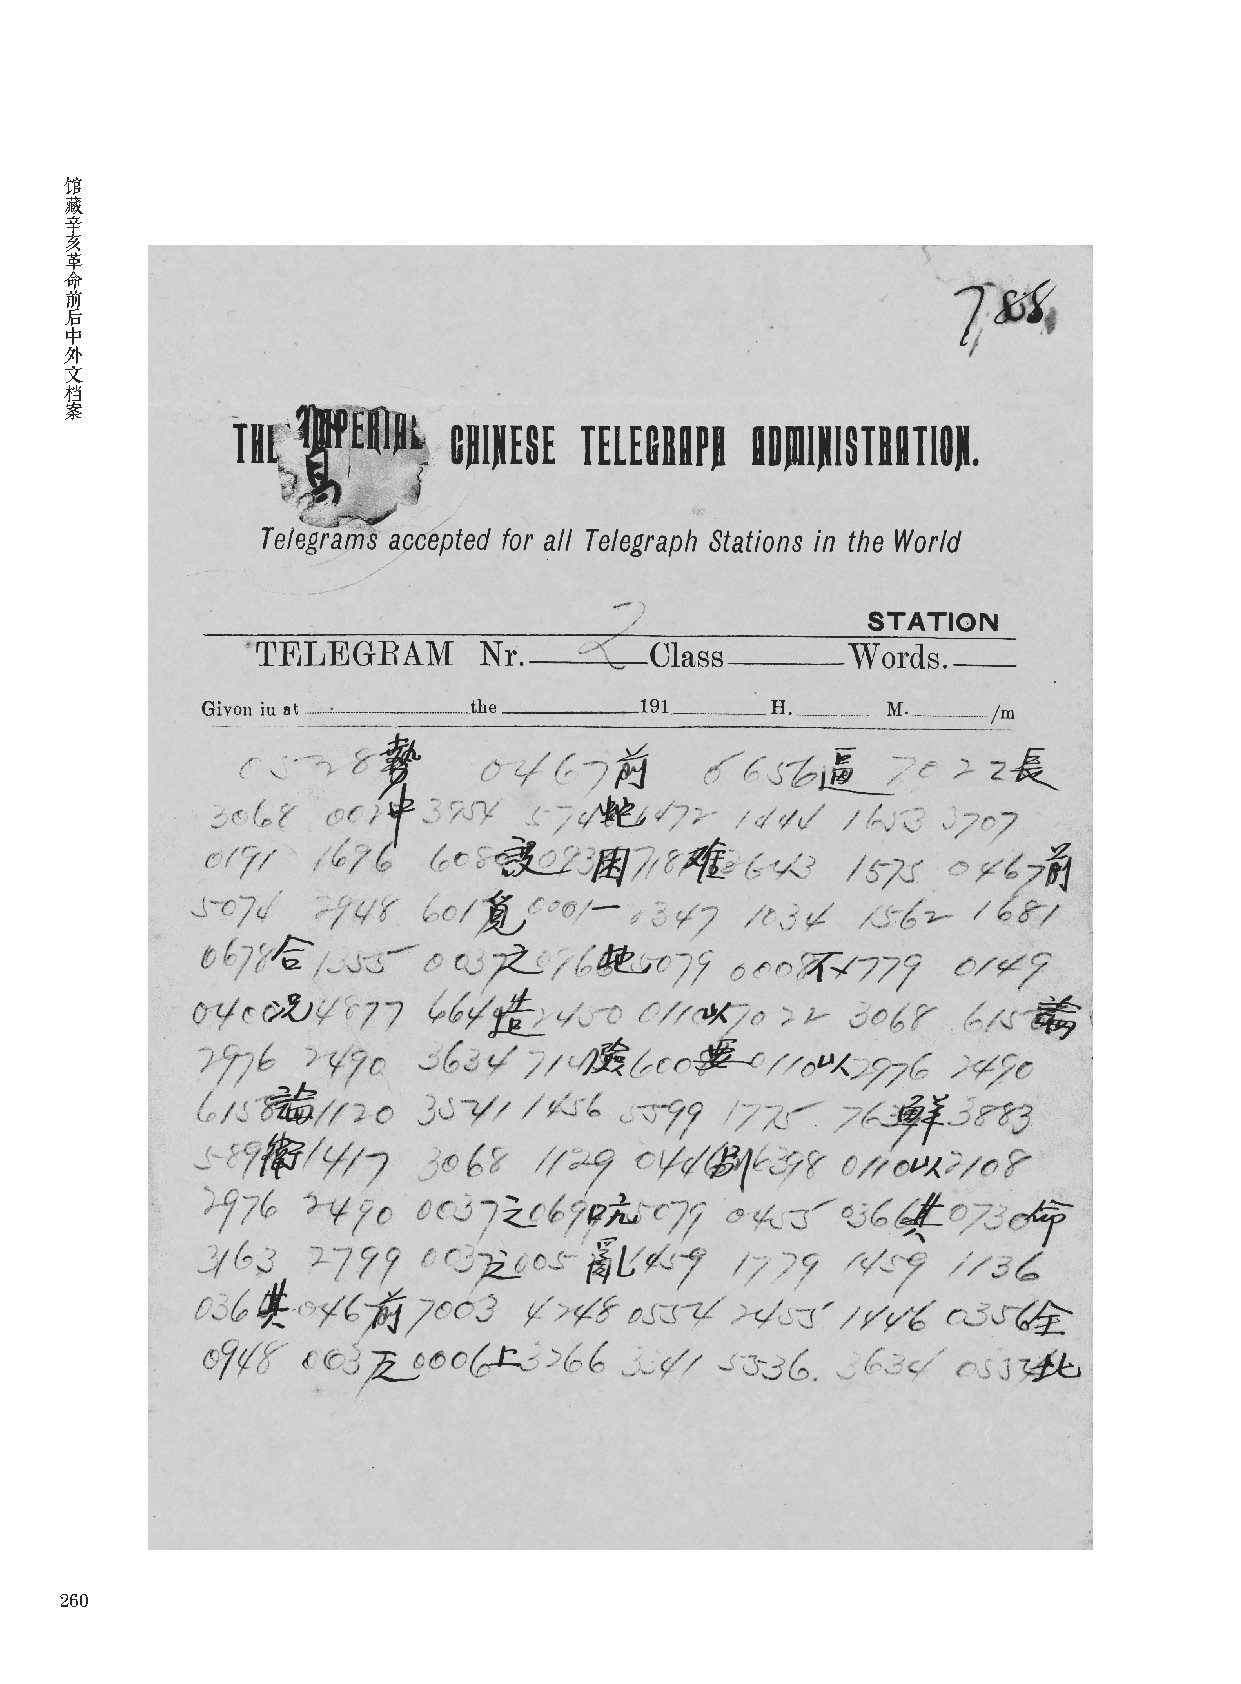 馆藏辛亥革命前后中外文档案
788
THE IMPERIAL CHINESE TELEGRAPH ADMINISTRATION.
Telegrams accepted for all Telegraph Stations in the World
STATION
TELEGRAM Nr. 2 Class Words.
Givon iu at the 191 H. M. /m
0528勢 0467前 6656逼 7022長
3068 中 3954 蛇 1472 1444 1653 3707
0191 1696 設 困 難 1575 0467前
5074 2948 601 覓 0001一 0347 1034 1562 1681
0678合 1355 0037之 地 5079 0008不 1779 0149
0400况 4877 664造 2450 0110以 7022 3068 615論
2976 2490 3634 714險 6008要 0110以 2976 2490
6158論 1120 3541 1456 5599 1775 763鮮 3883
589衛 1417 3068 1129 044副 6398 0110以 2108
2976 2490 0037之 069吭 5079 0455 0366其 0730命
3163 2799 003之 005亂 1459 1779 1459 1136
036其 046前 7003 4248 0554 2455 1446 0356全
0948 003之 0006上 3266 3341 5536. 3634 0554北
260